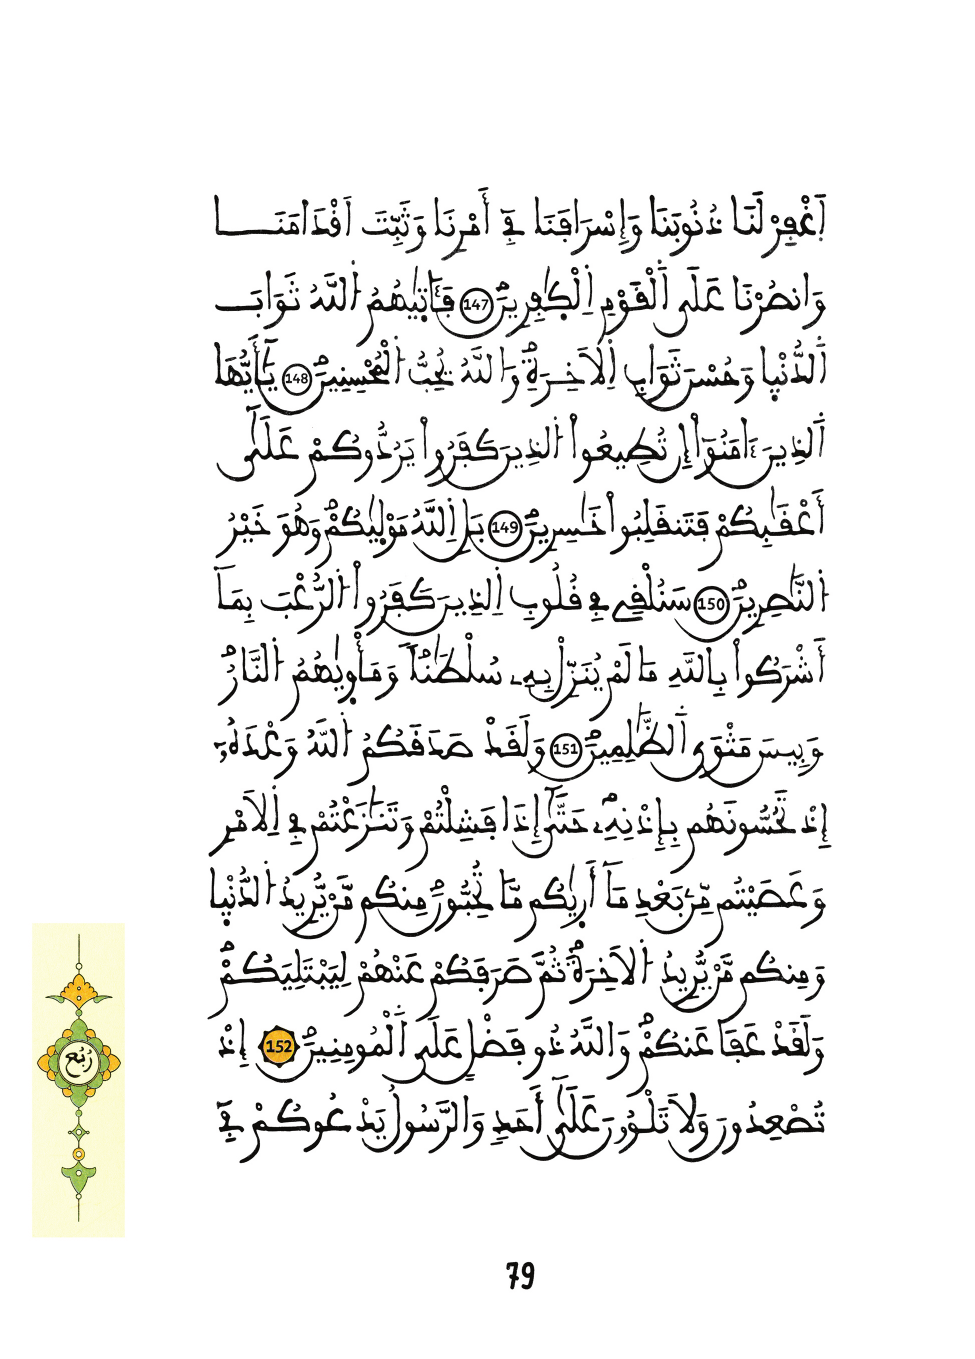 اَ۪غْفِرْ لَنَا ذُنُوبَنَا وَإِسْرَافَنَا فِےٓ أَمْرِنَا وَثَبِّتَ اَقْدَامَنَا
وَانصُرْنَا عَلَى اَ۬لْقَوْمِ اِ۬لْكٰفِرِينَ 147 فَـَٔات۪يٰهُمُ اُ۬للَّهُ ثَوَابَ
اَ۬لدُّنْي۪ا وَحُسْنَ ثَوَابِ اِ۬لَاخِرَةِ وَاللَّهُ يُحِبُّ اُ۬لْمُحْسِنِينَ 148 يَٰٓأَيُّهَا
اَ۬لذِينَ ءَامَنُوٓاْ إِن تُطِيعُواْ اُ۬لذِينَ كَفَرُواْ يَرُدُّوكُمْ عَلَىٰٓ
أَعْقَٰبِكُمْ فَتَنقَلِبُواْ خَٰسِرِينَ 149 بَلِ اِ۬للَّهُ مَوْل۪يٰكُمْ وَهُوَ خَيْرُ
اُ۬لنَّٰصِرِينَ 150 سَنُلْقِے فِے قُلُوبِ اِ۬لذِينَ كَفَرُواْ اُ۬لرُّعْبَ بِمَآ
أَشْرَكُواْ بِاللَّهِ مَا لَمْ يُنَزِّلْ بِهِۦ سُلْطَٰناٗ وَمَأْو۪يٰهُمُ اُ۬لنَّارُ
وَبِيسَ مَثْوَى اَ۬لظَّٰلِمِينَ 151 وَلَقَدْ صَدَقَكُمُ اُ۬للَّهُ وَعْدَهُۥٓ
إِذْ تَحُسُّونَهُم بِإِذْنِهِۦ حَتَّىٰٓ إِذَا فَشِلْتُمْ وَتَنَٰزَعْتُمْ فِے اِ۬لَامْرِ
وَعَصَيْتُم مِّنۢ بَعْدِ مَآ أَر۪يٰكُم مَّا تُحِبُّونَ مِنكُم مَّنْ يُّرِيدُ اُ۬لدُّنْي۪ا
وَمِنكُم مَّنْ يُّرِيدُ اُ۬لَاخِرَةَ ثُمَّ صَرَفَكُمْ عَنْهُمْ لِيَبْتَلِيَكُمْ
وَلَقَدْ عَفَا عَنكُمْ وَاللَّهُ ذُو فَضْلٍ عَلَى اَ۬لْمُومِنِينَ 152 إِذْ
تُصْعِدُونَ وَلَا تَلْوُۥنَ عَلَىٰٓ أَحَدٖ وَالرَّسُولُ يَدْعُوكُمْ فِےٓ
رُبُع
79